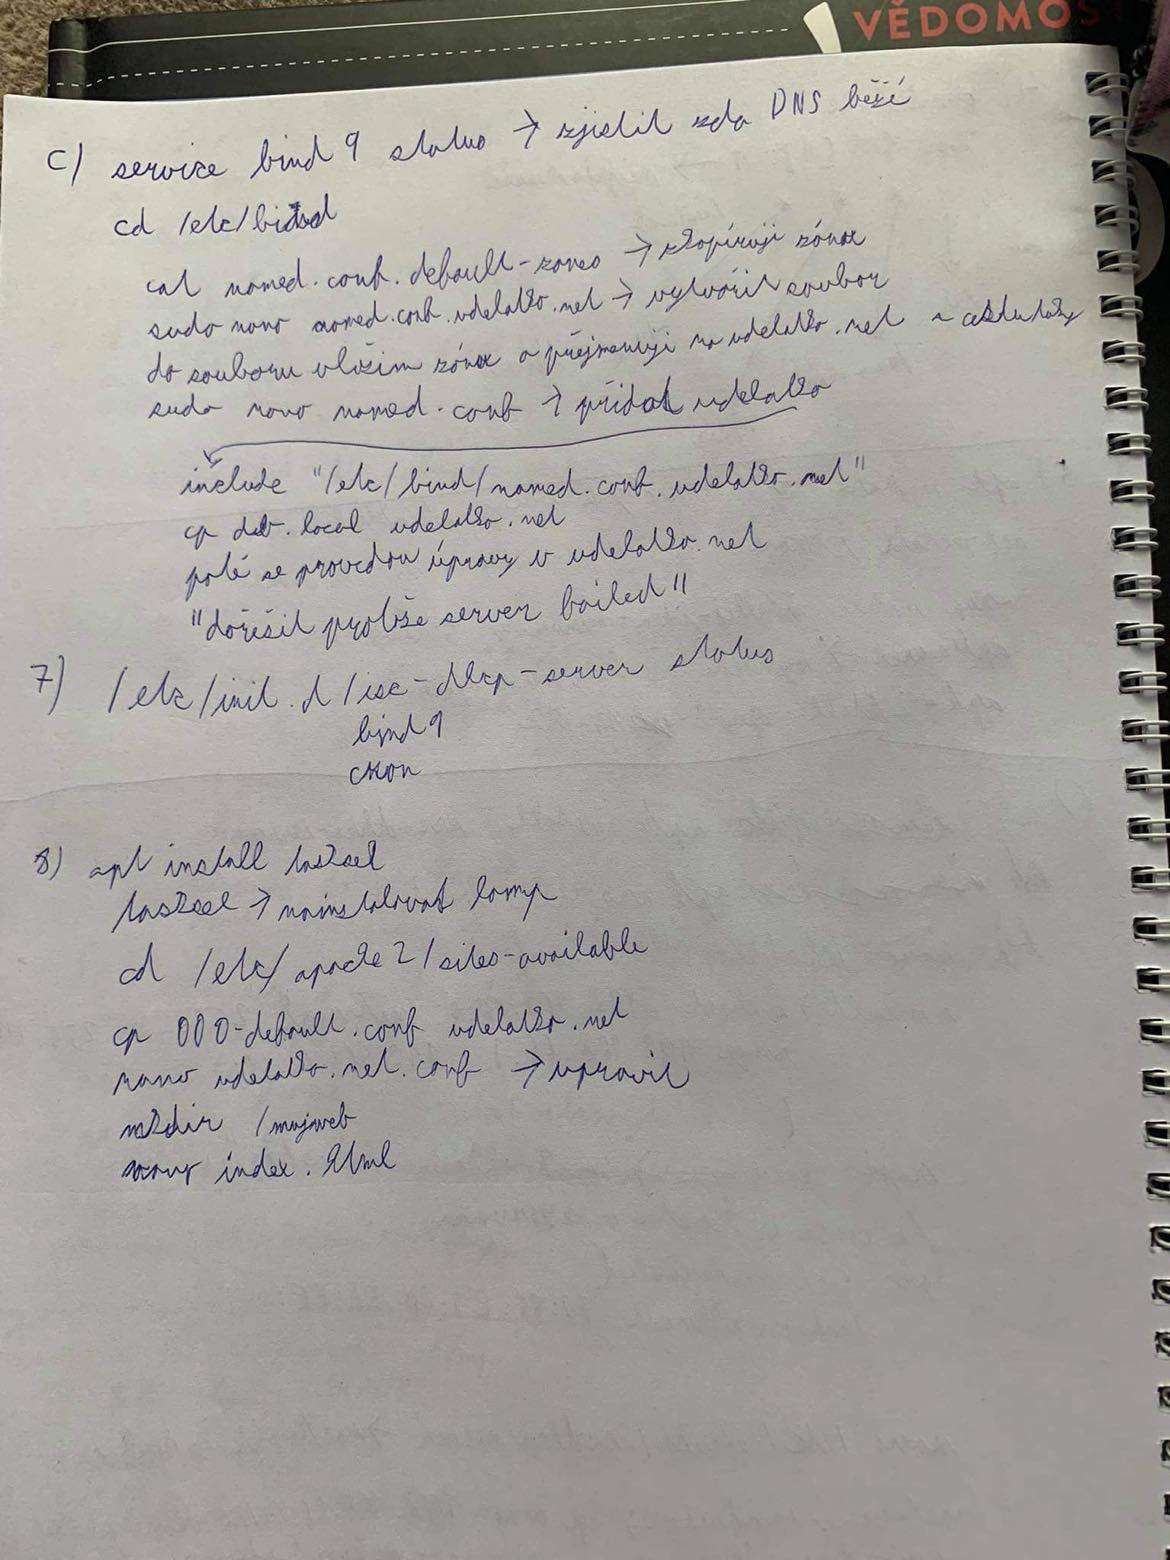 VĚDOMOS
c) service bind 9 status → zjistit zda DNS běží
cd /etc/bind
cat named.conf.default-zones → zkopíruji zónu
sudo nano named.conf.vdelatko.net → vytvořit soubor
do souboru vložím zónu a přejmenuji na vdelatko.net a cestu taky
sudo nano named.conf → přidat vdelatko
include "/etc/bind/named.conf.vdelatko.net"
cp db.local vdelatko.net
poté se provedou úpravy v vdelatko.net
"dořešit protože server failed"
7) /etc/init.d/isc-dhcp-server status
bind9
cron
8) apt install tasksel
tasksel → nainstalovat lamp
cd /etc/apache2/sites-available
cp 000-default.conf vdelatko.net
nano vdelatko.net.conf → upravit
mkdir /mujweb
nano index.html